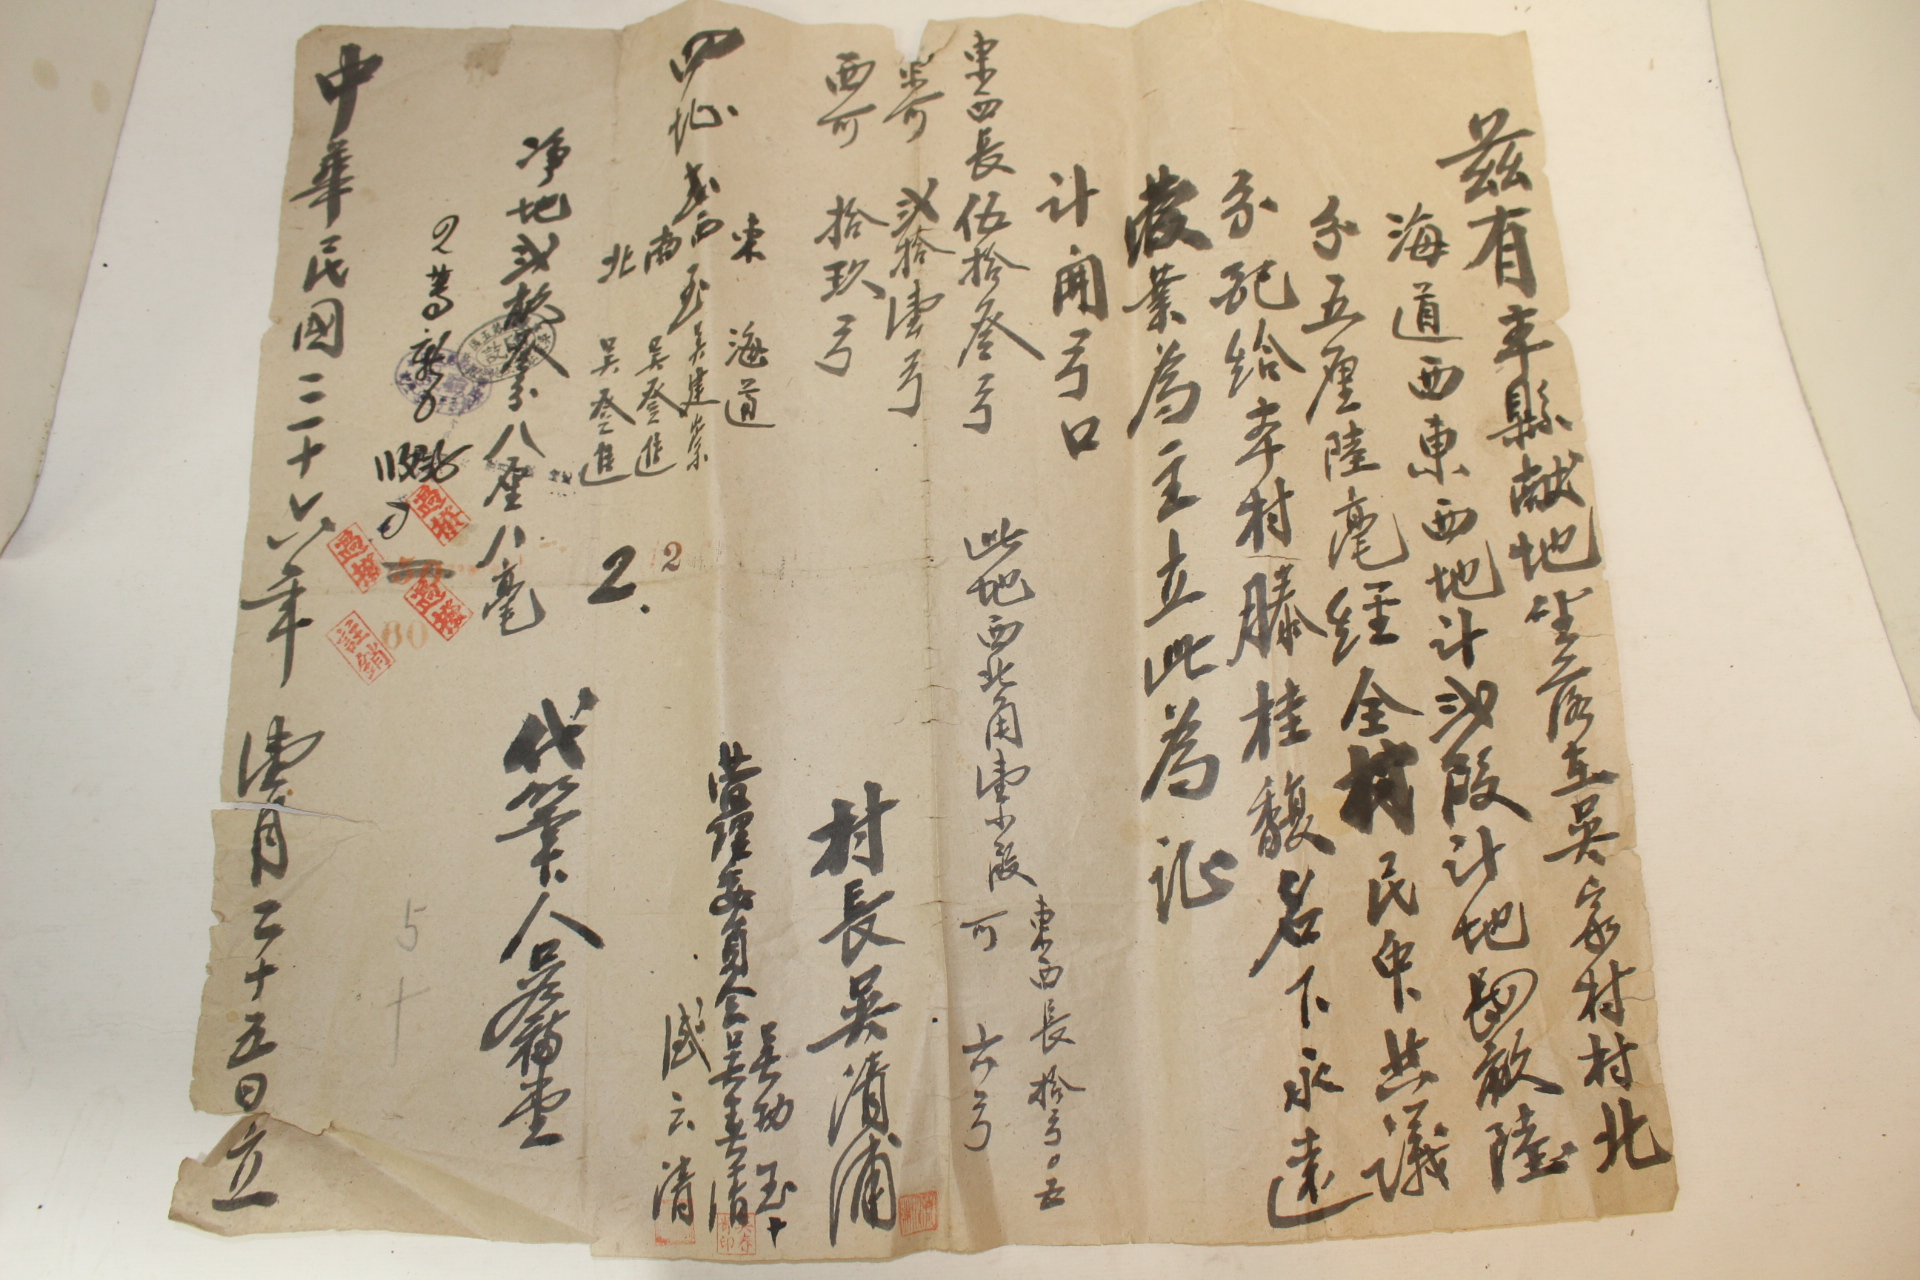 茲有本縣献地坐落在吳家村村北
海道西東西地計弍段計地四畝陸
分五厘陸毫經全村民众共議
分配給本村滕桂馥名下永遠
管業為主立此為証
計開弓口
東西長伍拾叄弓
東可弍拾壹弓
西可拾玖弓
此地西北角壹小段
東西長拾弓〇五
可六弓
四址
東海道
西至吳建崇
南吳登進
北吳登進
2.
2
净地弍畝叄分八厘八毫
村長吳清浦
管理委員会
吳功玉
吳春清
盛云清
代筆人吳福堂
註銷
00
5十
中華民國三十六年壹月二十五日立